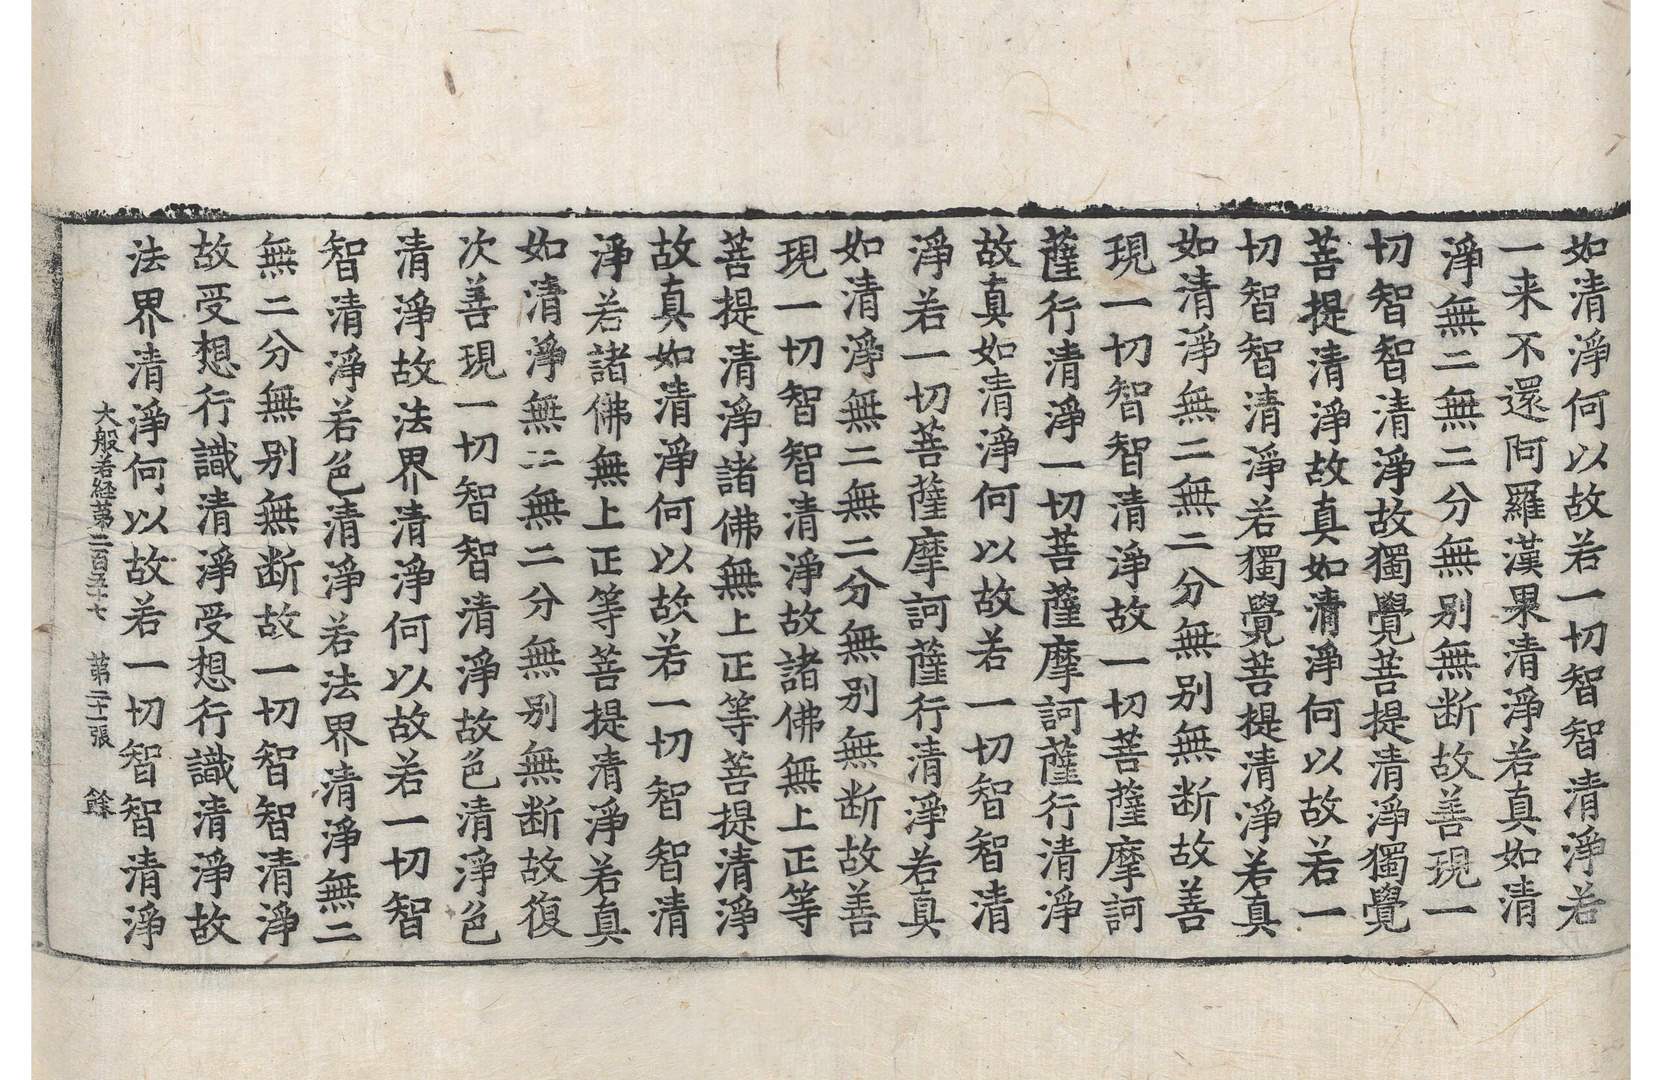 如清淨何以故若一切智智清淨若
一来不還阿羅漢果清淨若真如清
淨無二無二分無别無断故善現一
切智智清淨故獨覺菩提清淨獨覺
菩提清淨故真如清淨何以故若一
切智智清淨若獨覺菩提清淨若真
如清淨無二無二分無别無断故善
現一切智智清淨故一切菩薩摩訶
薩行清淨一切菩薩摩訶薩行清淨
故真如清淨何以故若一切智智清
淨若一切菩薩摩訶薩行清淨若真
如清淨無二無二分無别無断故善
現一切智智清淨故諸佛無上正等
菩提清淨諸佛無上正等菩提清淨
故真如清淨何以故若一切智智清
淨若諸佛無上正等菩提清淨若真
如清淨無二無二分無别無断故復
次善現一切智智清淨故色清淨色
清淨故法界清淨何以故若一切智
智清淨若色清淨若法界清淨無二
無二分無别無断故一切智智清淨
故受想行識清淨受想行識清淨故
法界清淨何以故若一切智智清淨
大般若経第二百五十七　第二十一張　餘